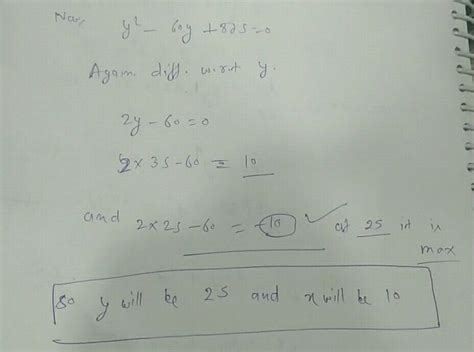 Now, y² - 60y + 875 = 0
Again diff. w.r.t y.
2y - 60 = 0
2 x 35 - 60 = 10
and 2 x 25 - 60 = -10 ✓ at 25 it is max
So y will be 25 and x will be 10